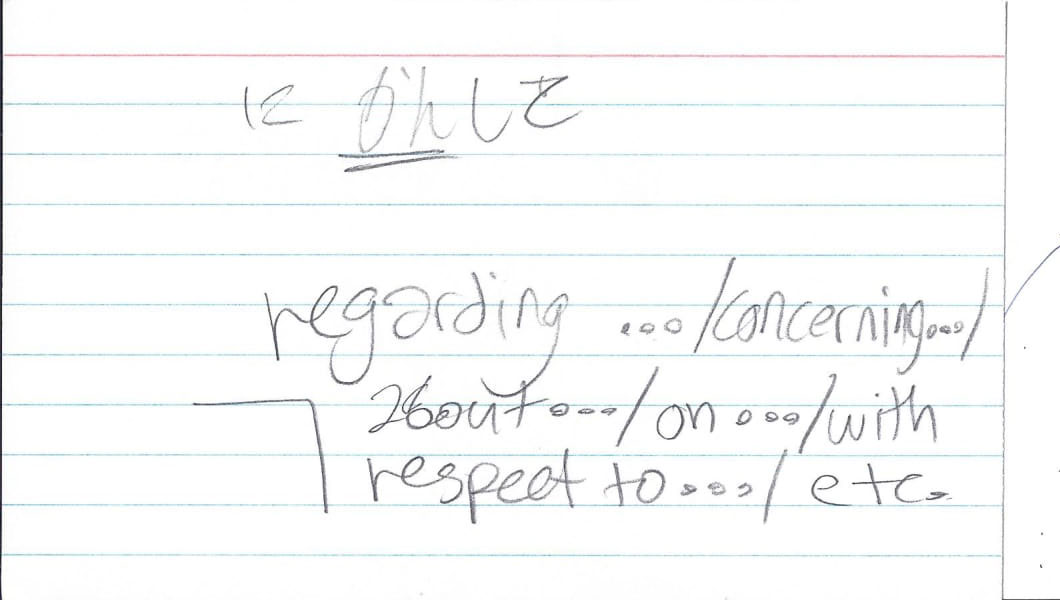 に かんして
regarding .... /concerning..../
about..../ on .../with
respect to..../ etc.